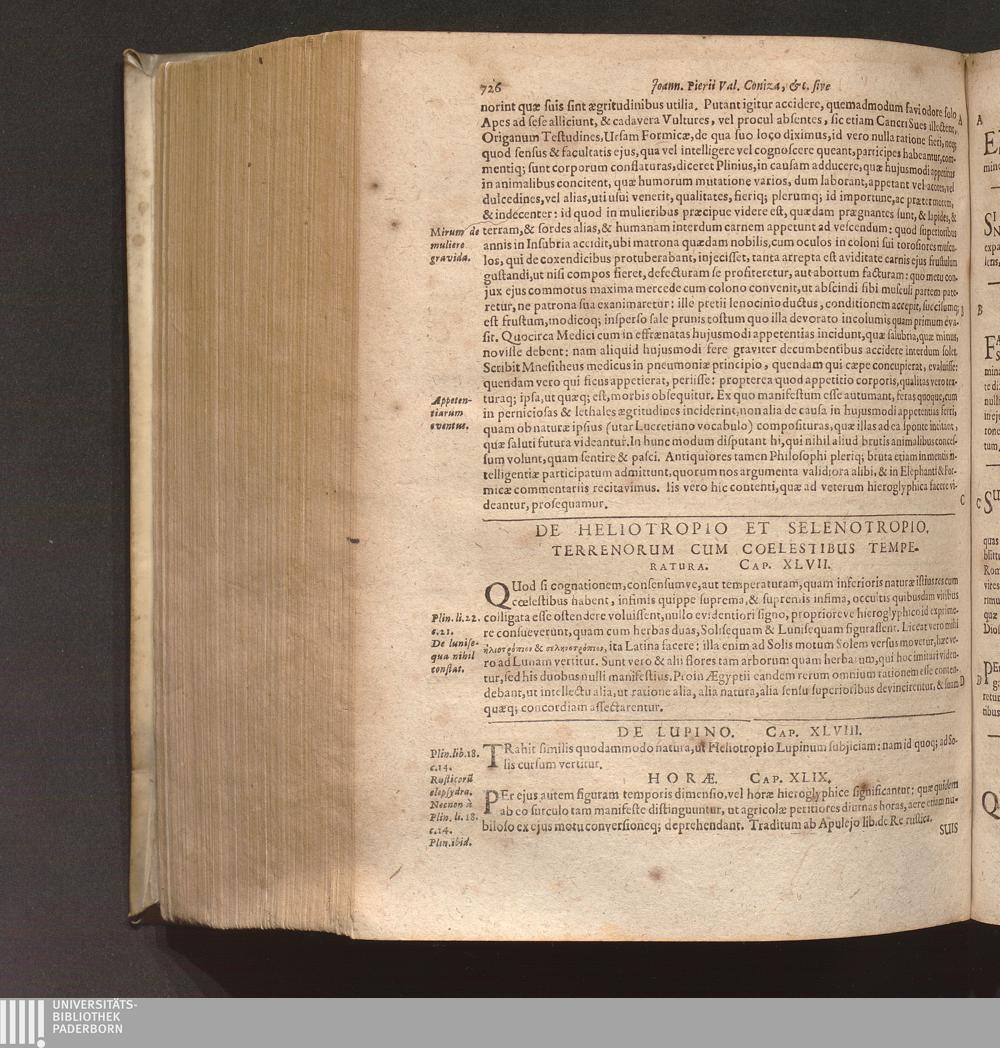 726
Joann. Pierii Val. Coniza, &c. sive
norint quæ suis sint ægritudinibus utilia. Putant igitur accidere, quemadmodum favi odore solo
Apes ad sese alliciunt, & cadavera Vultures, vel procul absentes, sic etiam Cancri Sues illectent, A
Origanum Testudines, Ursam Formicæ, de qua suo loco diximus, id vero nulla ratione fieri, neq;
quod sensus & facultatis ejus, qua vel intelligere vel cognoscere queant, participes habeantur, com-
mentiq; sunt corporum constaturas, diceret Plinius, in causam adducere, quæ hujusmodi appetitus
in animalibus concitent, quæ humorum mutatione varios, dum laborant, appetant vel acores, vel
dulcedines, vel alias, uti usui venerit, qualitates, fieriq; plerumq; id importune, ac præter morem,
& indecenter: id quod in mulieribus præcipue videre est, quædam prægnantes sunt, & lapides, &
Mirum de
muliere
gravida.
terram, & sordes alias, & humanam interdum carnem appetunt ad vescendum: quod superioribus
annis in Insubria accidit, ubi matrona quædam nobilis, cum oculos in coloni sui torosiores muscu-
los, qui de coxendicibus protuberabant, injecisset, tanta arrepta est aviditate carnis ejus frustulum
gustandi, ut nisi compos fieret, defecturam se profiteretur, aut abortum facturam: quo metu con-
jux ejus commotus maxima mercede cum colono convenit, ut abscindi sibi musculi partem pate-
retur, ne patrona sua exanimaretur: ille pretii lenocinio ductus, conditionem accepit, succisumq; B
est frustum, modicoq; insperso sale prunis tostum quo illa devorato incolumis quam primum eva-
sit. Quocirca Medici cum in effrænatas hujusmodi appetentias incidunt, quæ salubria, quæ minus,
novisse debent: nam aliquid hujusmodi fere graviter decumbentibus accidere interdum solet.
Scribit Mnesitheus medicus in pneumoniæ principio, quendam qui cæpe concupierat, evaluisse:
quendam vero qui ficus appetierat, periisse: propterea quod appetitio corporis, qualitas vero tex-
Appeten-
tiarum
eventus.
turaq; ipsa, ut quæq; est, morbis obsequitur. Ex quo manifestum esse autumant, feras quoque, cum
in perniciosas & lethales ægritudines inciderint, non alia de causa in hujusmodi appetentias ferri,
quam ob naturæ ipsius (utar Lucretiano vocabulo) composituras, quæ illas ad ea sponte incitant,
quæ saluti futura videantur. In hunc modum disputant hi, qui nihil aliud brutis animalibus conces-
sum volunt, quam sentire & pasci. Antiquiores tamen Philosophi pleriq; bruta etiam in mentis in-
telligentiæ participatum admittunt, quorum nos argumenta validiora alibi, & in Elephanti & For-
micæ commentariis recitavimus. Iis vero hic contenti, quæ ad veterum hieroglyphica facere vi-
deantur, prosequamur. C
DE HELIOTROPIO ET SELENOTROPIO.
TERRENORUM CUM COELESTIBUS TEMPE-
RATURA. CAP. XLVII.
QUod si cognationem, consensumve, aut temperaturam, quam inferioris naturæ istius res cum
cœlestibus habent, infimis quippe suprema, & supremis infima, occultis quibusdam viribus
Plin. li. 22.
c. 21.
De lunise-
qua nihil
constat.
colligata esse ostendere voluissent, nullo evidentiori signo, proprioreve hieroglyphico id exprime-
re consueverunt, quam cum herbas duas, Solisequam & Lunisequam figurassent. Liceat vero mihi
ἡλιοτρόπιον & σεληνοτρόπιον, ita Latina facere: illa enim ad Solis motum Solem versus movetur, hæc ve-
ro ad Lunam vertitur. Sunt vero & alii flores tam arborum quam herbarum, qui hoc imitari viden-
tur, sed his duobus nulli manifestius. Proin Ægyptii eandem rerum omnium rationem esse conten-
debant, ut intellectu alia, ut ratione alia, alia natura, alia sensu superioribus devincirentur, & suam D
quæq; concordiam assectarentur.
DE LUPINO. CAP. XLVIII.
Plin. lib. 18.
c. 14.
TRahit similis quodammodo natura, ut Heliotropio Lupinum subjiciam: nam id quoq; ad So-
lis cursum vertitur.
HORÆ. CAP. XLIX.
Rusticorũ
clepsydra.
Necnon à
Plin. li. 18.
c. 14.
Plin. ibid.
PEr ejus autem figuram temporis dimensio, vel horæ hieroglyphice significantur: quæ quidem
ab eo surculo tam manifeste distinguuntur, ut agricolæ peritiores diurnas horas, aere etiam nu-
biloso ex ejus motu conversioneq; deprehendant. Traditum ab Apulejo lib. de Re rustica,
suis
A
mine
SI
N
expa
lens,
B
mina
te di
nulli
in ej
tone
tum,
C
quas
Rom
vires
rimu
quæ
Dios
D
PEr
retur
tibus
Q
UNIVERSITÄTS-
BIBLIOTHEK
PADERBORN